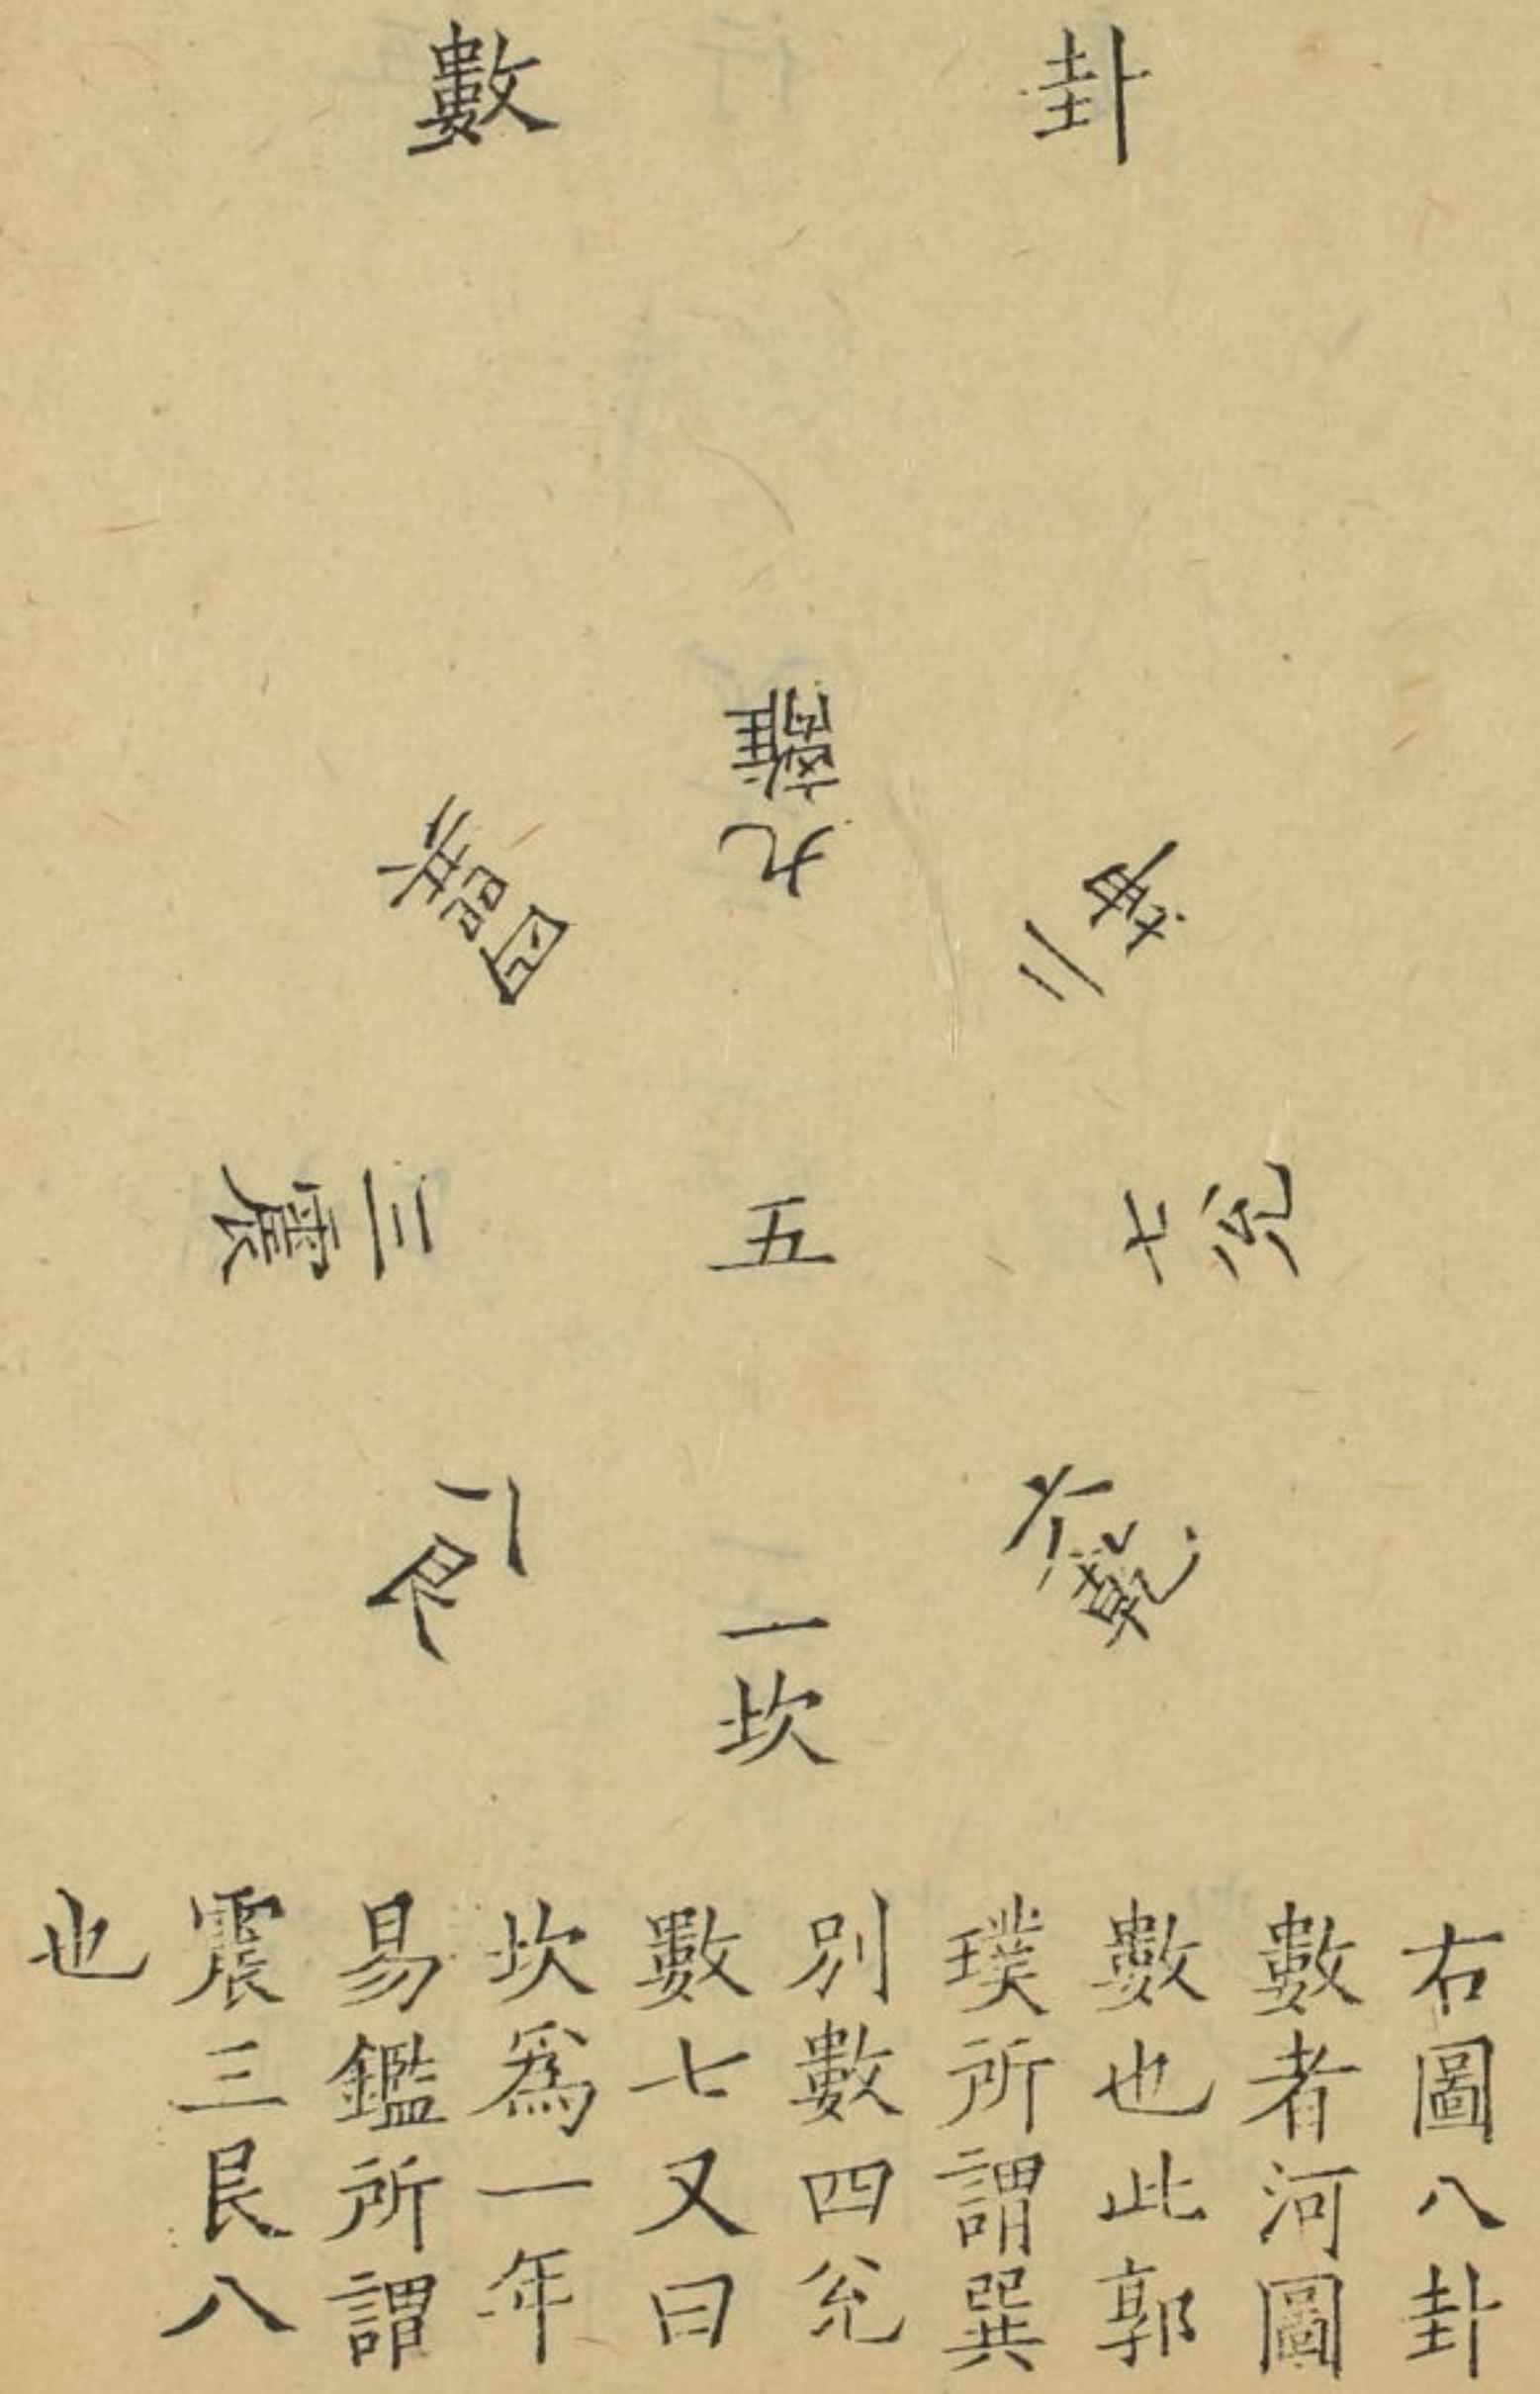 卦數
離九
坤二
巽四
兌七
五
三震
六乾
八艮
一坎
右圖八卦
數者河圖
數也此郭
璞所謂巽
別數四兊
數七又曰
坎為一年
易鑑所謂
震三艮八
也